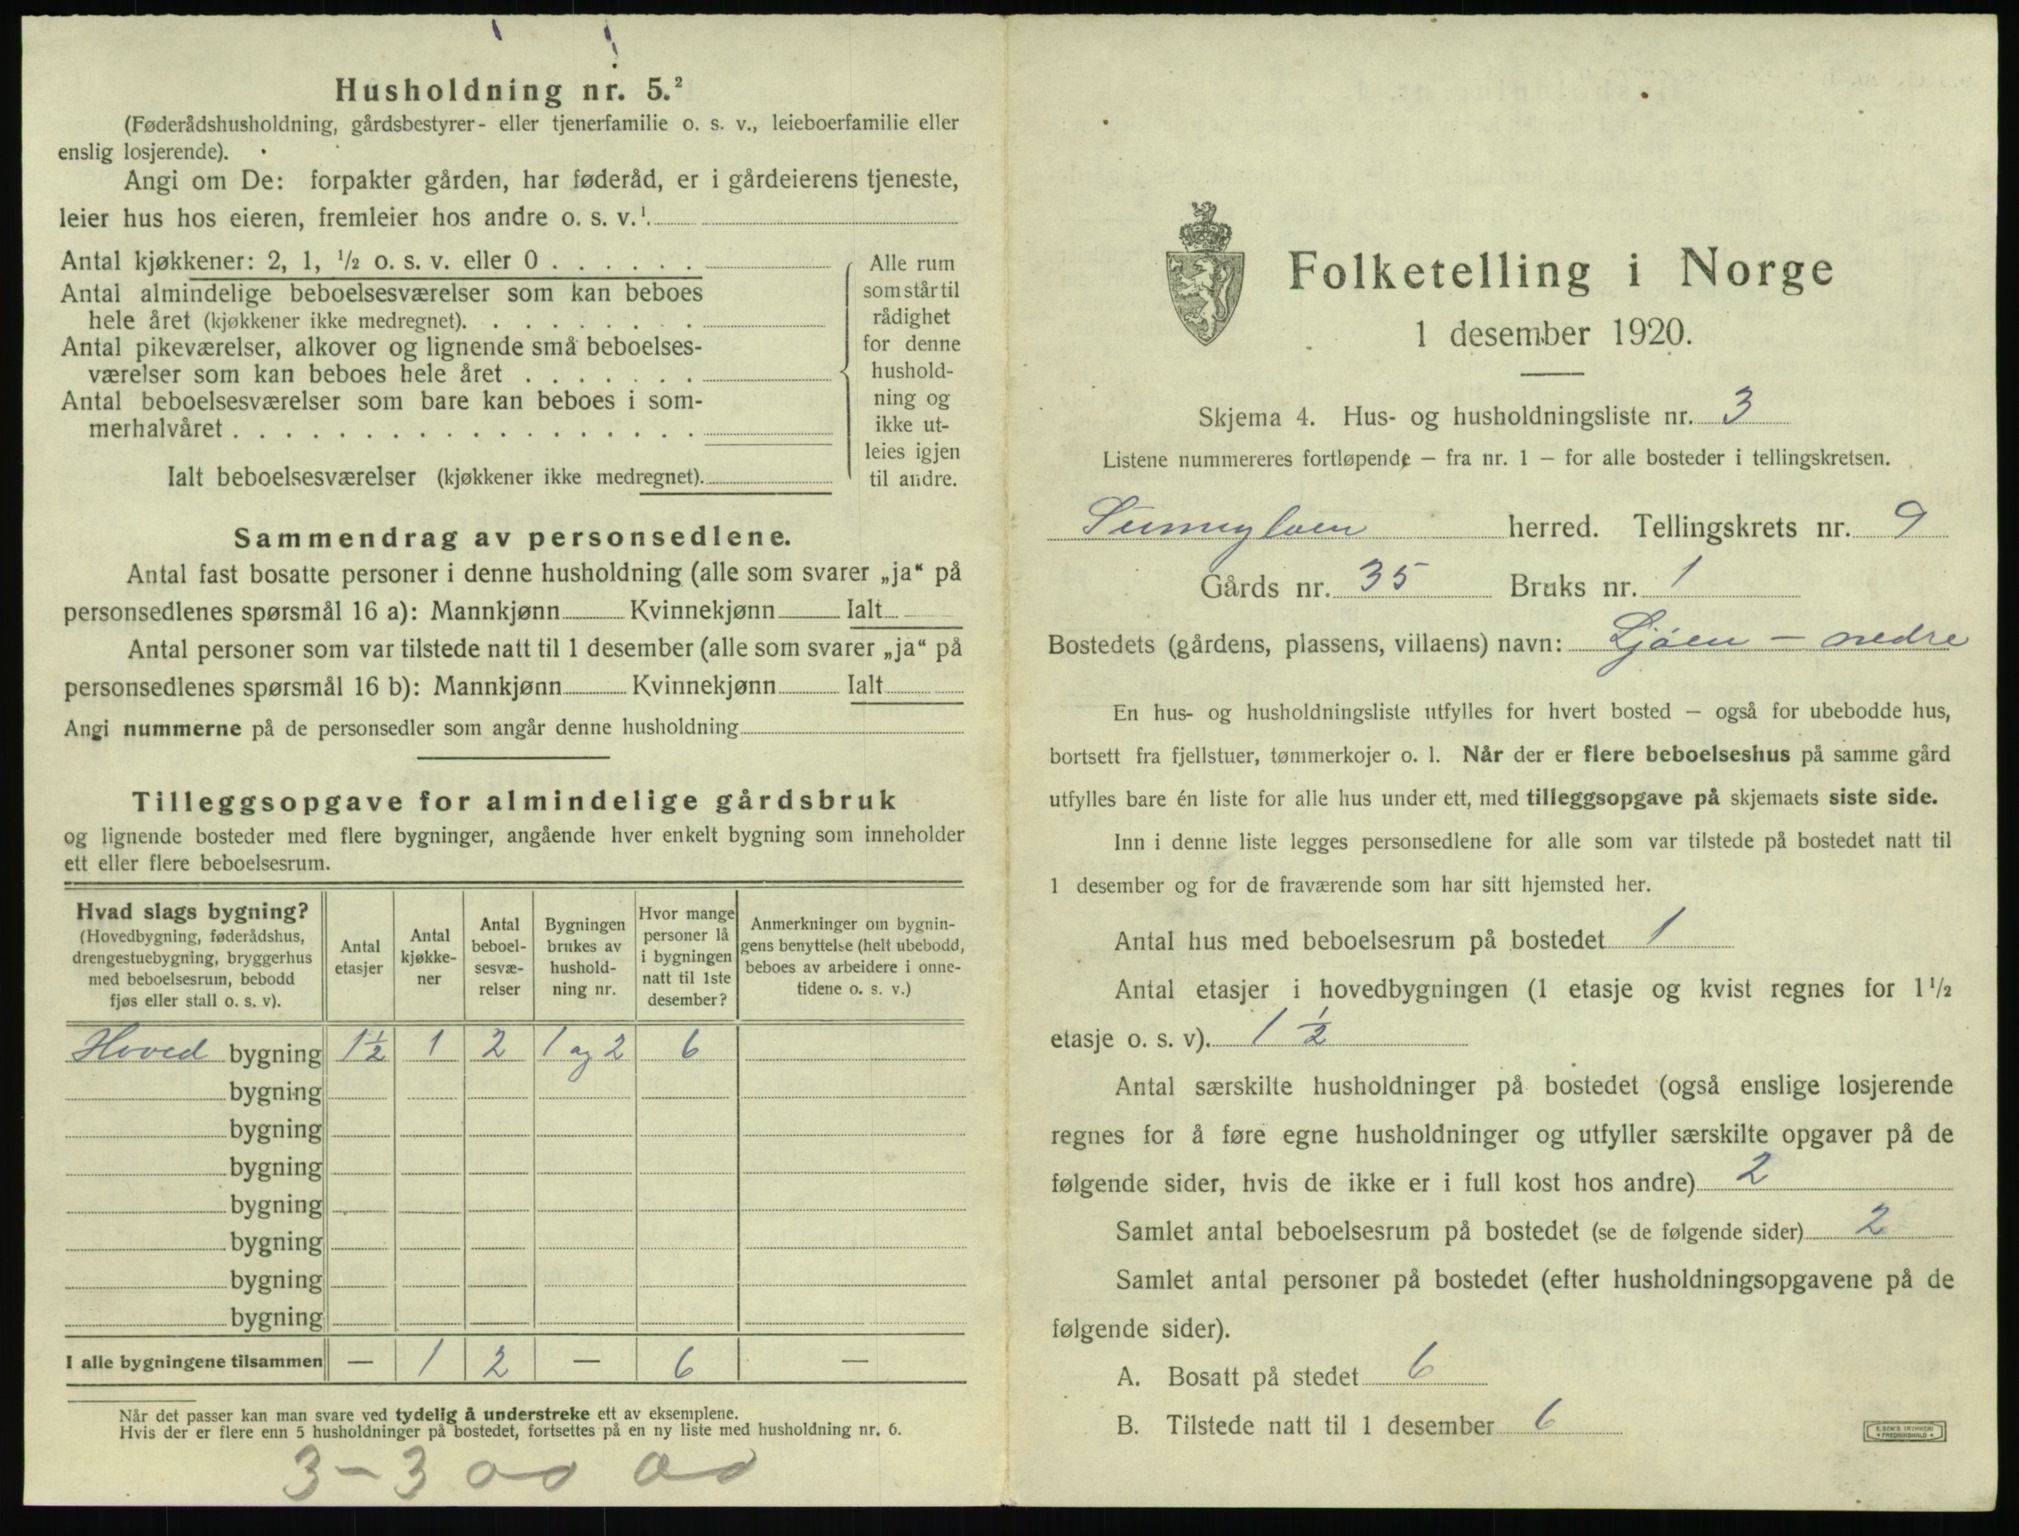 Husholdning nr. 5.²
(Føderådshusholdning, gårdsbestyrer- eller tjenerfamilie o. s. v., leieboerfamilie eller
enslig losjerende).
Angi om De: forpakter gården, har føderåd, er i gårdeierens tjeneste,
leier hus hos eieren, fremleier hos andre o. s. v.¹
Antal kjøkkener: 2, 1, ½ o. s. v. eller 0
Antal almindelige beboelsesværelser som kan beboes
hele året (kjøkkener ikke medregnet).
Antal pikeværelser, alkover og lignende små beboelses-
værelser som kan beboes hele året
Antal beboelsesværelser som bare kan beboes i som-
merhalvåret
Ialt beboelsesværelser (kjøkkener ikke medregnet).
Alle rum
som står til
rådighet
for denne
hushold-
ning og
ikke ut-
leies igjen
til andre.
Sammendrag av personsedlene.
Antal fast bosatte personer i denne husholdning (alle som svarer „ja“ på
personsedlenes spørsmål 16 a): Mannkjønn Kvinnekjønn Ialt
Antal personer som var tilstede natt til 1 desember (alle som svarer „ja“ på
personsedlenes spørsmål 16 b): Mannkjønn Kvinnekjønn Ialt
Angi nummerne på de personsedler som angår denne husholdning
Tilleggsopgave for almindelige gårdsbruk
og lignende bosteder med flere bygninger, angående hver enkelt bygning som inneholder
ett eller flere beboelsesrum.
Hvad slags bygning?
(Hovedbygning, føderådshus,
drengestuebygning, bryggerhus
med beboelsesrum, bebodd
fjøs eller stall o. s. v).
Antal
etasjer
Antal
kjøkke-
ner
Antal
beboel-
sesvæ-
relser
Bygningen
brukes av
hushold-
ning nr.
Hvor mange
personer lå
i bygningen
natt til 1ste
desember?
Anmerkninger om bygnin-
gens benyttelse (helt ubebodd,
beboes av arbeidere i onne-
tidene o. s. v.)
Hoved bygning 1½ 1 2 1 og 2 6
bygning
bygning
bygning
bygning
bygning
bygning
bygning
I alle bygningene tilsammen — 1 2 — 6 —
Når det passer kan man svare ved tydelig å understreke ett av eksemplene.
Hvis der er flere enn 5 husholdninger på bostedet, fortsettes på en ny liste med husholdning nr. 6.
3-3 00 00
Folketelling i Norge
1 desember 1920.
Skjema 4. Hus- og husholdningsliste nr. 3
Listene nummereres fortløpende — fra nr. 1 — for alle bosteder i tellingskretsen.
Sunnylven herred. Tellingskrets nr. 9
Gårds nr. 35 Bruks nr. 1
Bostedets (gårdens, plassens, villaens) navn: Ljøen — nedre
En hus- og husholdningsliste utfylles for hvert bosted — også for ubebodde hus,
bortsett fra fjellstuer, tømmerkojer o. l. Når der er flere beboelseshus på samme gård
utfylles bare én liste for alle hus under ett, med tilleggsopgave på skjemaets siste side.
Inn i denne liste legges personsedlene for alle som var tilstede på bostedet natt til
1 desember og for de fraværende som har sitt hjemsted her.
Antal hus med beboelsesrum på bostedet 1
Antal etasjer i hovedbygningen (1 etasje og kvist regnes for 1½
etasje o. s. v). 1½
Antal særskilte husholdninger på bostedet (også enslige losjerende
regnes for å føre egne husholdninger og utfyller særskilte opgaver på de
følgende sider, hvis de ikke er i full kost hos andre) 2
Samlet antal beboelsesrum på bostedet (se de følgende sider) 2
Samlet antal personer på bostedet (efter husholdningsopgavene på de
følgende sider).
A. Bosatt på stedet 6
B. Tilstede natt til 1 desember 6